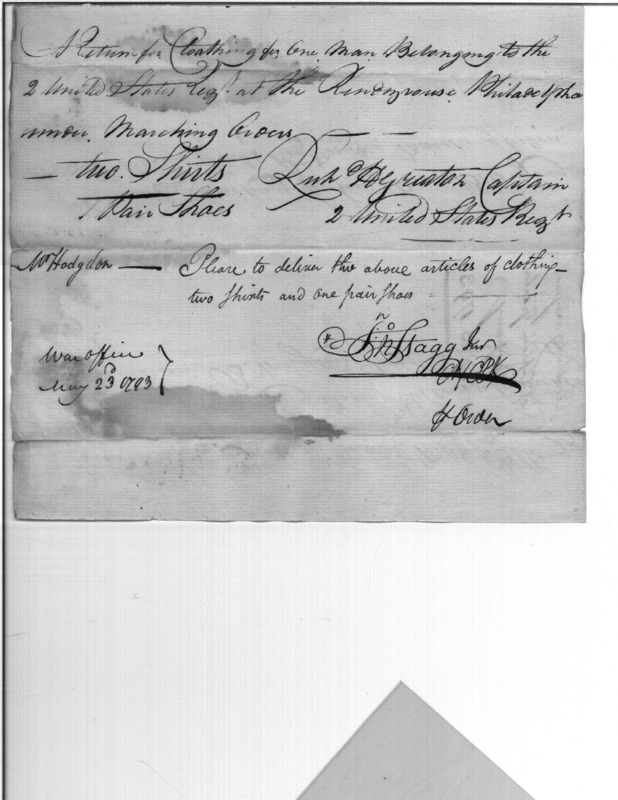 A Return for Cloathing for One Man Belonging to the
2 United States Regt. at the Rendezvouse Philadelphia
under Marching Orders
two Shirts
1 Pair Shoes
Captain
2 United States Regt
Mr Hodgdon — Please to deliver the above articles of clothing
two Shirts and one pair Shoes
Jno Stagg Junr
War office
May 23d 1793